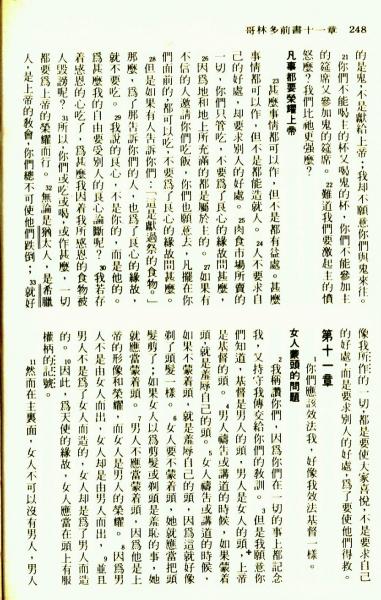 哥林多前書十一章 248
的是鬼,不是獻給上帝;我却不願意你們與鬼來往。
21你們不能喝主的杯又喝鬼的杯,你們不能參加主
的筵席又參加鬼的筵席。22難道我們要激起主的憤
怒麼?我們比祂更强麼?
凡事都要榮耀上帝
23甚麼事情都可以作,但不是都有益處。甚麼
事情都可以作,但不是都能造就人。24人不要求自
己的好處,却要求別人的好處。25肉食市場所賣的
一切,你們只管吃,不要爲了良心的緣故問甚麼。
26因爲地和地上所充滿的都是屬於主的。27如果有
不信的人邀請你們吃飯,你們也願意去,凡擺在你
們面前的,都可以吃,不要爲了良心的緣故問甚麼。
28但是如果有人告訴你們:「這是獻過祭的食物。」
那麼,爲了那告訴你們的人,也爲了良心的緣故,
就不要吃。29我說的良心,不是你的,而是他的。
爲甚麼我的自由要受別人的良心論斷呢?30我若存
着感恩的心吃了,爲甚麼我因着我所感恩的食物被
人毀謗呢?31所以,你們或吃或喝,或作甚麼,一切
都要爲上帝的榮耀而行。32無論是猶太人,是希臘
人,是上帝的教會,你們總不可使他們跌倒;33就好
像我所作的一切,都是要使大家喜悅,不是要求自己
的好處,而是要求別人的好處,爲了要使他們得救。
第十一章
1你們應該效法我,好像我效法基督一樣。
女人蒙頭的問題
2我稱讚你們,因爲你們在一切的事上都記念
我,又持守我傳交給你們的教訓。3但是我願意你
們知道,基督是男人的頭,男人是女人的頭,上帝
是基督的頭。4男人禱告或講道的時候,如果蒙着
頭,就是羞辱自己的頭。5女人禱告或講道的時候,
如果不蒙着頭,就是羞辱自己的頭,因爲這就好像
剃了頭髮一樣。6女人要不蒙着頭,她就應當把頭
髮剪了;如果女人以爲剪髮或剃頭是羞恥的事,她
就應當蒙着頭。7男人不應當蒙着頭,因爲他是上
帝的形像和榮耀,而女人是男人的榮耀。8因爲男
人不是由女人而出,女人却是由男人而出,9並且
男人不是爲了女人而造的,女人却是爲了男人而造
的。10因此,爲天使的緣故,女人應當在頭上有服
權柄的記號。
11然而在主裏面,女人不可以沒有男人,男人